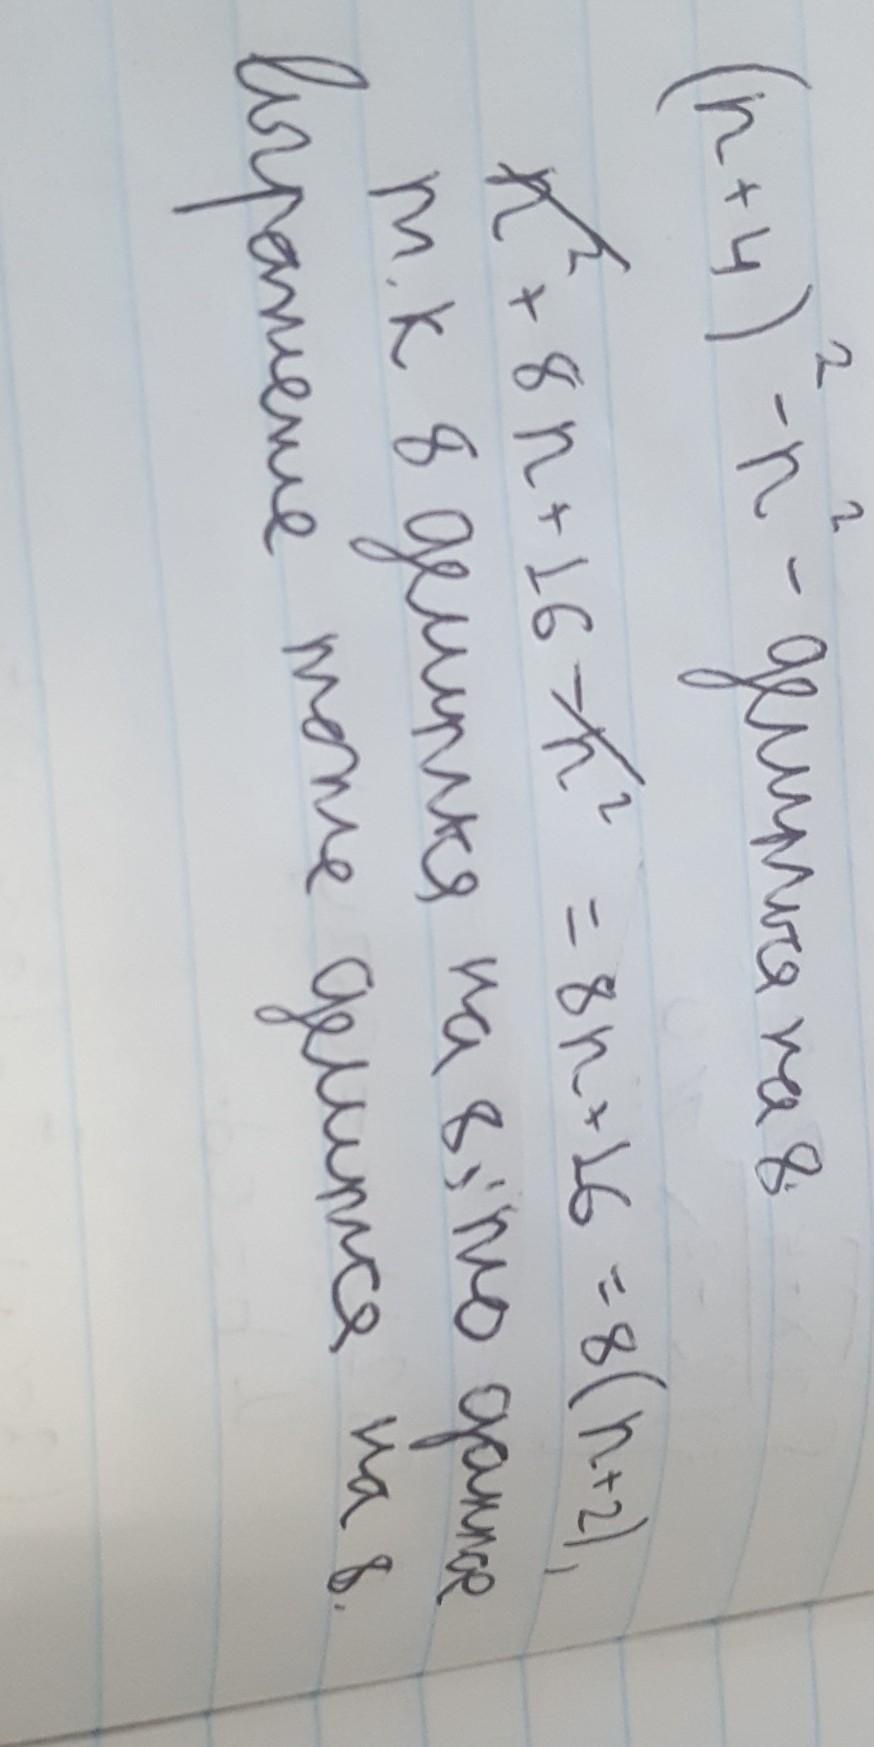 (n+4)² - n² - делится на 8.
n² + 8n + 16 - n² = 8n + 16 = 8(n+2),
т.к 8 делится на 8, то данное
выражение тоже делится на 8.